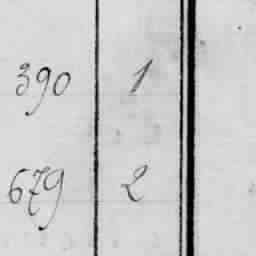 390 1
679 2